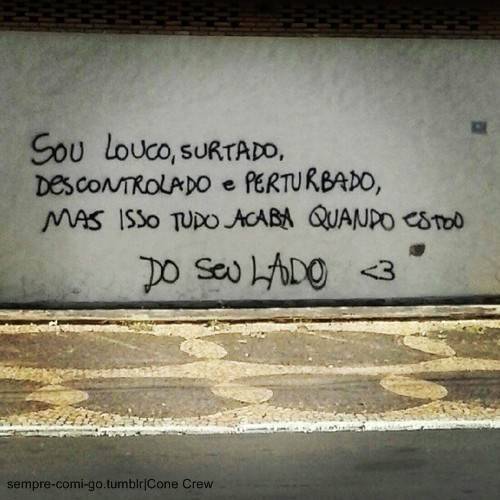 SOU LOUCO, SURTADO,
DESCONTROLADO e PERTURBADO,
MAS ISSO TUDO ACABA QUANDO eSTOU
DO SeU LADO <3
sempre-comi-go.tumblr|Cone Crew